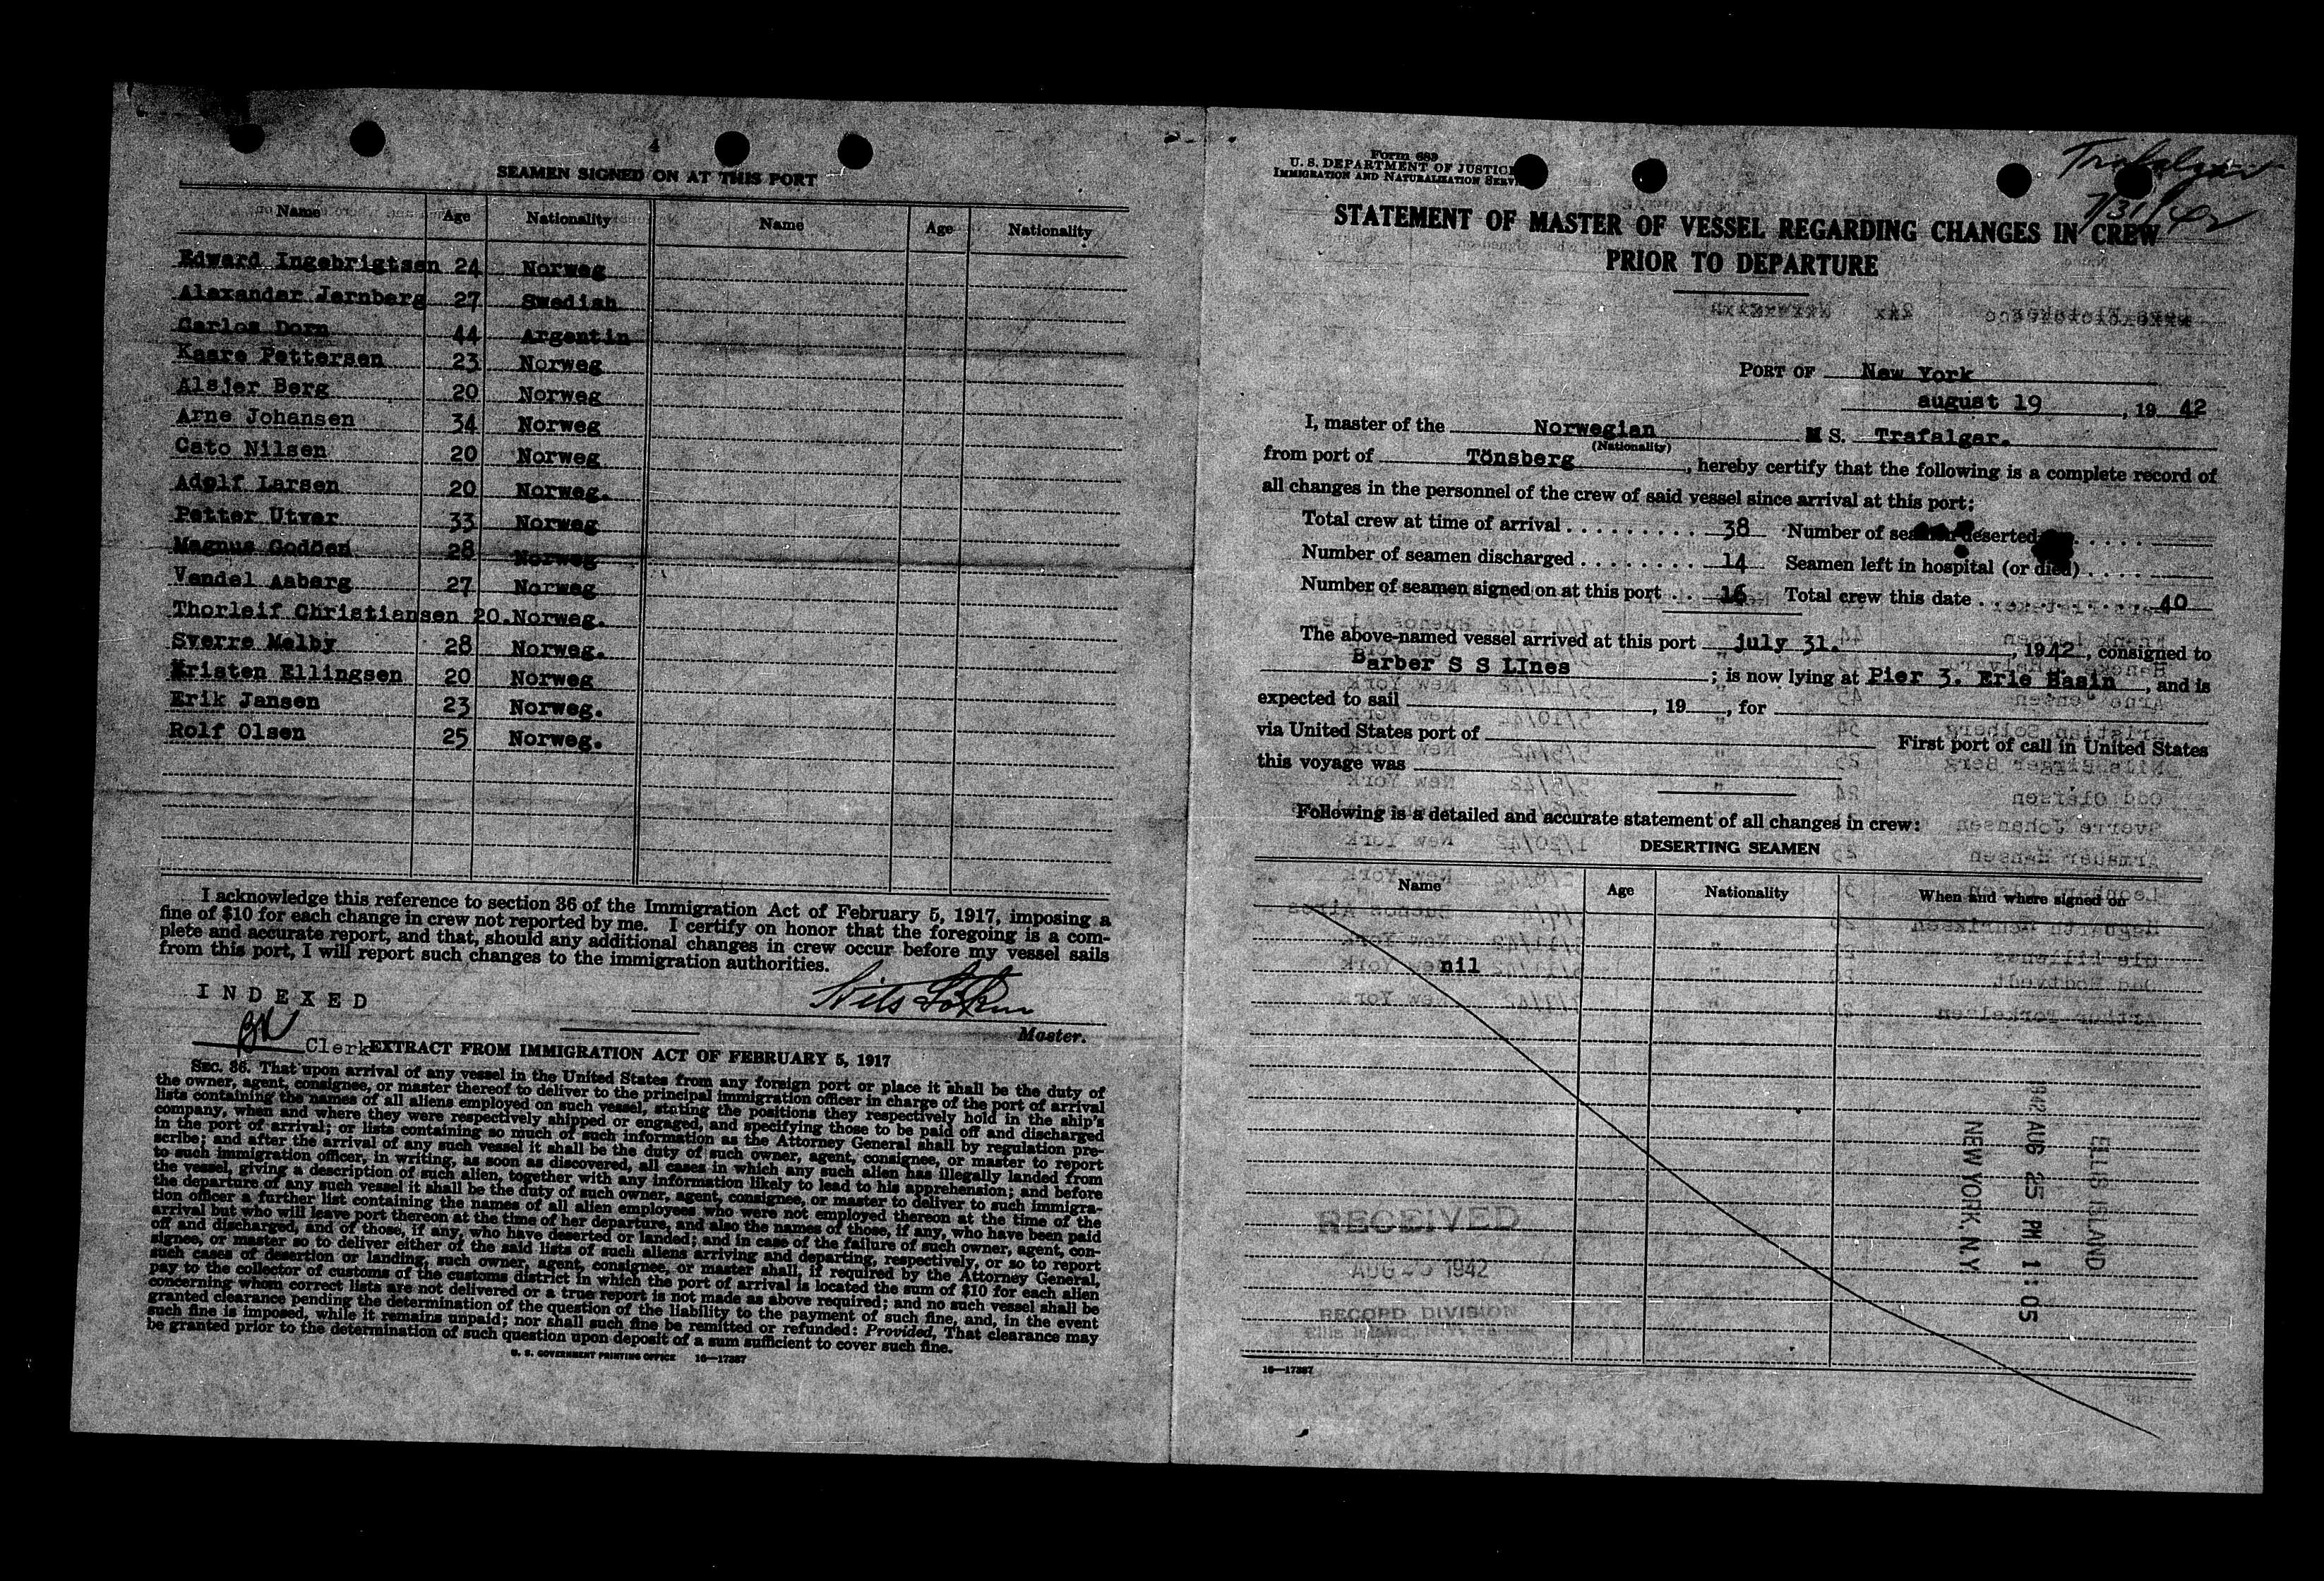 4
SEAMEN SIGNED ON AT THIS PORT
Name Age Nationality Name Age Nationality
Edward Ingebrigtsen 24 Norweg
Alexander Jernberg 27 Swedish
Carlos Dorn 44 Argentin
Kaare Pettersen 23 Norweg
Alsjer Berg 20 Norweg
Arne Johansen 34 Norweg
Cato Nilsen 20 Norweg
Adolf Larsen 20 Norweg.
Petter Utver 33 Norweg
Magnus Godöen 28 Norweg
Vendel Aaberg 27 Norweg
Thorleif Christiansen 20.Norweg.
Sverre Melby 28 Norweg.
Kristen Ellingsen 20 Norweg
Erik Jansen 23 Norweg.
Rolf Olsen 25 Norweg.
I acknowledge this reference to section 36 of the Immigration Act of February 5, 1917, imposing a
fine of $10 for each change in crew not reported by me. I certify on honor that the foregoing is a com-
plete and accurate report, and that, should any additional changes in crew occur before my vessel sails
from this port, I will report such changes to the immigration authorities.
INDEXED
Nils
Master.
Clerk
EXTRACT FROM IMMIGRATION ACT OF FEBRUARY 5, 1917
SEC. 36. That upon arrival of any vessel in the United States from any foreign port or place it shall be the duty of
the owner, agent, consignee, or master thereof to deliver to the principal immigration officer in charge of the port of arrival
lists containing the names of all aliens employed on such vessel, stating the positions they respectively hold in the ship's
company, when and where they were respectively shipped or engaged, and specifying those to be paid off and discharged
in the port of arrival; or lists containing so much of such information as the Attorney General shall by regulation pre-
scribe; and after the arrival of any such vessel it shall be the duty of such owner, agent, consignee, or master to report
to such immigration officer, in writing, as soon as discovered, all cases in which any such alien has illegally landed from
the vessel, giving a description of such alien, together with any information likely to lead to his apprehension; and before
the departure of any such vessel it shall be the duty of such owner, agent, consignee, or master to deliver to such immigra-
tion officer a further list containing the names of all alien employees who were not employed thereon at the time of the
arrival but who will leave port thereon at the time of her departure, and also the names of those, if any, who have been paid
off and discharged, and of those, if any, who have deserted or landed; and in case of the failure of such owner, agent, con-
signee, or master so to deliver either of the said lists of such aliens arriving and departing, respectively, or so to report
such cases of desertion or landing, such owner, agent, consignee, or master shall, if required by the Attorney General,
pay to the collector of customs of the customs district in which the port of arrival is located the sum of $10 for each alien
concerning whom correct lists are not delivered or a true report is not made as above required; and no such vessel shall be
granted clearance pending the determination of the question of the liability to the payment of such fine, and, in the event
such fine is imposed, while it remains unpaid; nor shall such fine be remitted or refunded: Provided, That clearance may
be granted prior to the determination of such question upon deposit of a sum sufficient to cover such fine.
U. S. GOVERNMENT PRINTING OFFICE 16—17387
Trafalgar
7/31/42
Form 689
U. S. DEPARTMENT OF JUSTICE
IMMIGRATION AND NATURALIZATION
STATEMENT OF MASTER OF VESSEL REGARDING CHANGES IN CREW
PRIOR TO DEPARTURE
PORT OF New York
august 19, 19 42
I, master of the Norwegian M S. Trafalgar.
(Nationality)
from port of Tönsberg, hereby certify that the following is a complete record of
all changes in the personnel of the crew of said vessel since arrival at this port:
Total crew at time of arrival 38 Number of seamen deserted
Number of seamen discharged 14 Seamen left in hospital (or died)
Number of seamen signed on at this port 16 Total crew this date 40
The above-named vessel arrived at this port july 31., 1942, consigned to
Barber S S LInes; is now lying at Pier 3. Erie Basin, and is
expected to sail , 19 , for
via United States port of First port of call in United States
this voyage was
Following is a detailed and accurate statement of all changes in crew:
DESERTING SEAMEN
Name Age Nationality When and where signed on
nil
RECEIVED
AUG 1942
RECORD DIVISION
ELLIS ISLAND
1942 AUG 25 PM 1:05
NEW YORK, N.Y.
16—17387